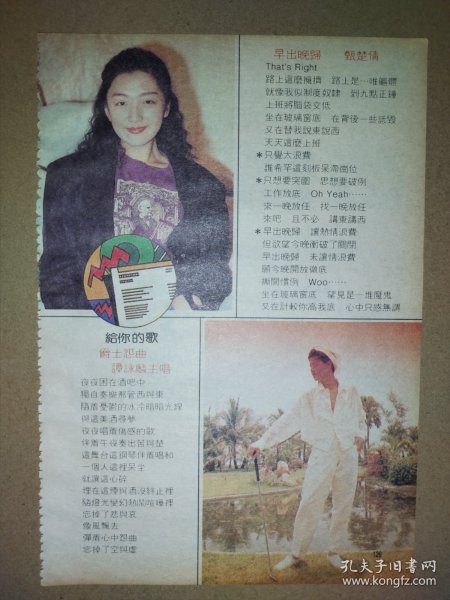 早出晚歸　甄楚倩
That's Right
路上這麼擁擠　路上是⋯唯軀體
就像我似制度奴隸　到九點正鐘
上班將腦袋交低
坐在玻璃窗底　在背後一些詆毀
又在替我說東說西
天天這麼上班
*只覺太浪費
誰希罕這刻板呆滯崗位
*只想要突圍　思想要破例
工作放底　Oh Yeah⋯⋯
來一晚放任　找一晚放任
來吧　且不必　講東講西
*早出晚歸　讓熱情浪費
但欲望今晚衝破了關閉
早出晚歸　未讓情浪費
願今晚開放徹底
撕開慣例　Woo⋯⋯
坐在玻璃窗底　望見是一堆魔鬼
又在計較你高我底　心中只感無謂
給你的歌
爵士怨曲
譚詠麟主唱
夜夜困在酒吧中
獨自奏樂那管西與東
隨着憂鬱的冰冷暗暗光線
與這美酒尋夢
夜夜唱着傷感的歌
伴着午夜奏出苦與楚
這舞台這鋼琴伴着唱和
一個人這裡呆坐
就讓這心碎
埋在這煙與酒沒終止裡
隨燈光變幻熱鬧喧嘩裡
忘掉了悲與哀
像風飄去
彈着心中怨曲
忘掉了空與虛
129
孔夫子旧书网
www.kongfz.com